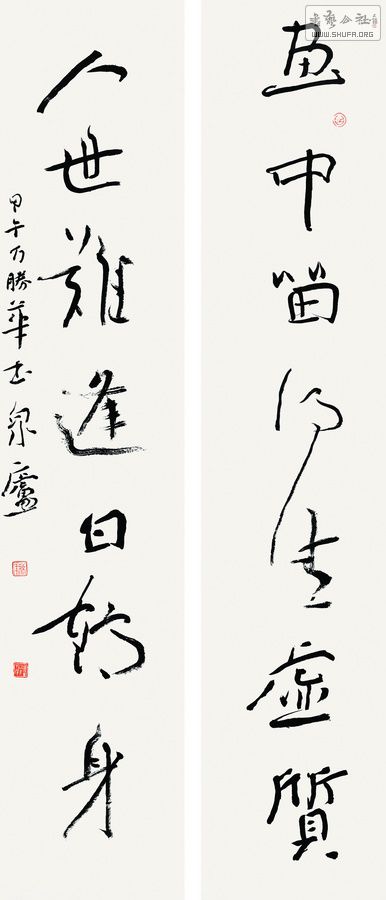 书艺公社
WWW.SHUFA.ORG
畫中留得清虛質
人世難逢白鶴身
甲午乃勝華泉廬